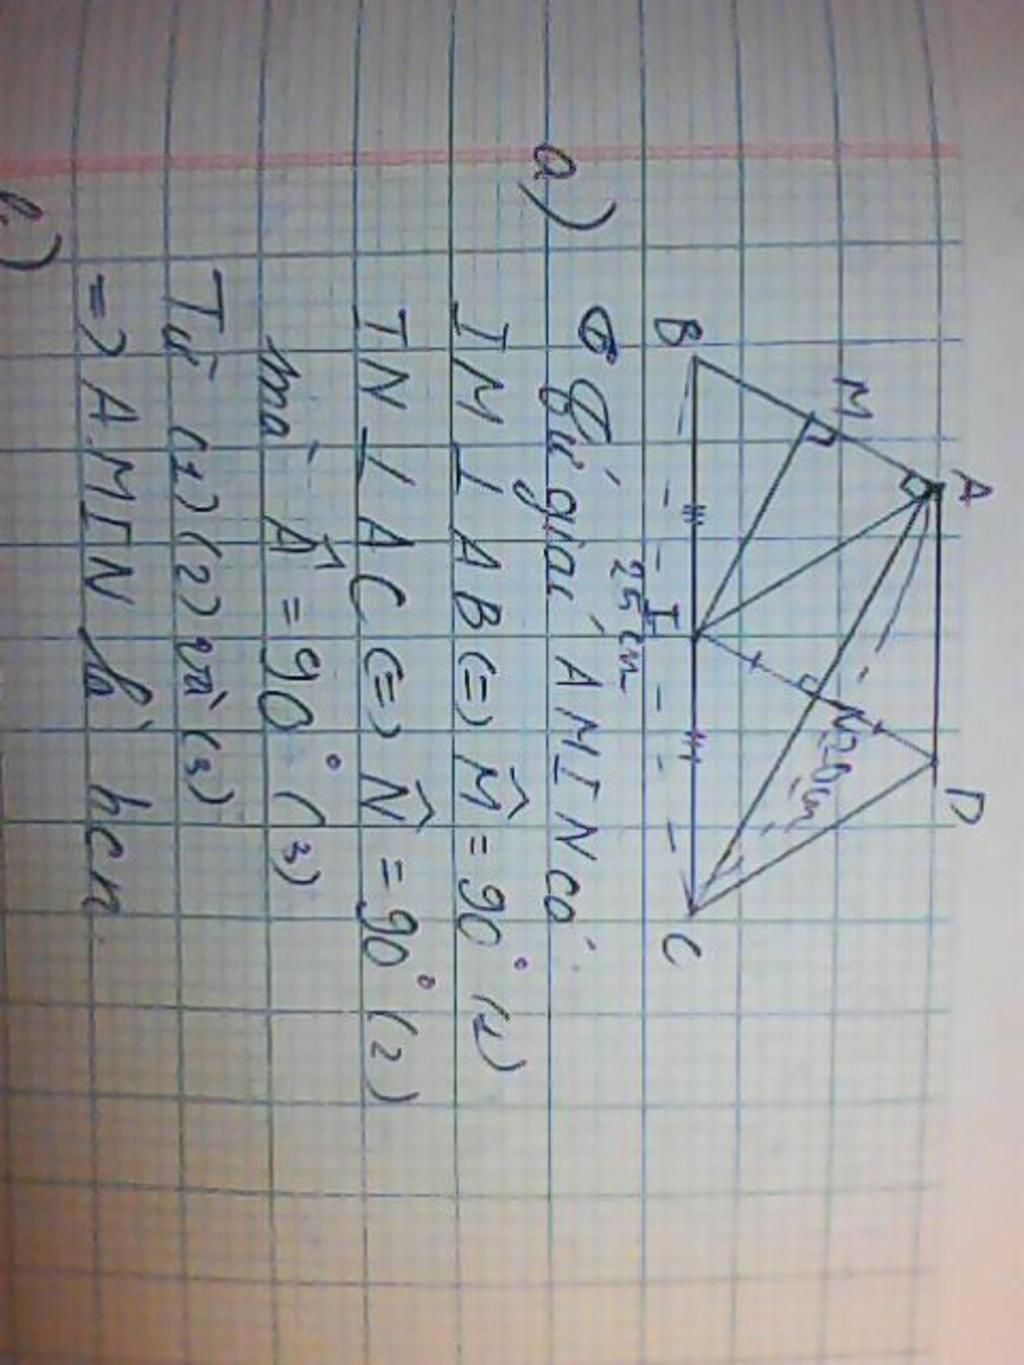 A
D
M
N 20cm
B
I
C
25cm
a)
Tứ giác AMIN có
IM ⊥ AB (=) M̂ = 90° (1)
IN ⊥ AC (=) N̂ = 90° (2)
mà Â = 90° (3)
Từ (1) (2) và (3)
=) AMIN là hcn
b)